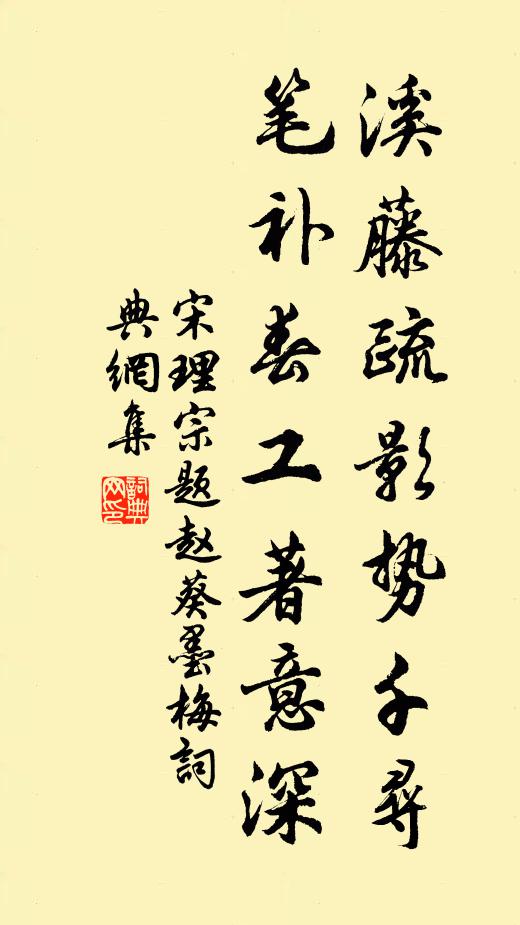 溪藤疏影势千尋
笔补春工著意深
宋理宗题赵葵墨梅詞
典網集
詞典網印